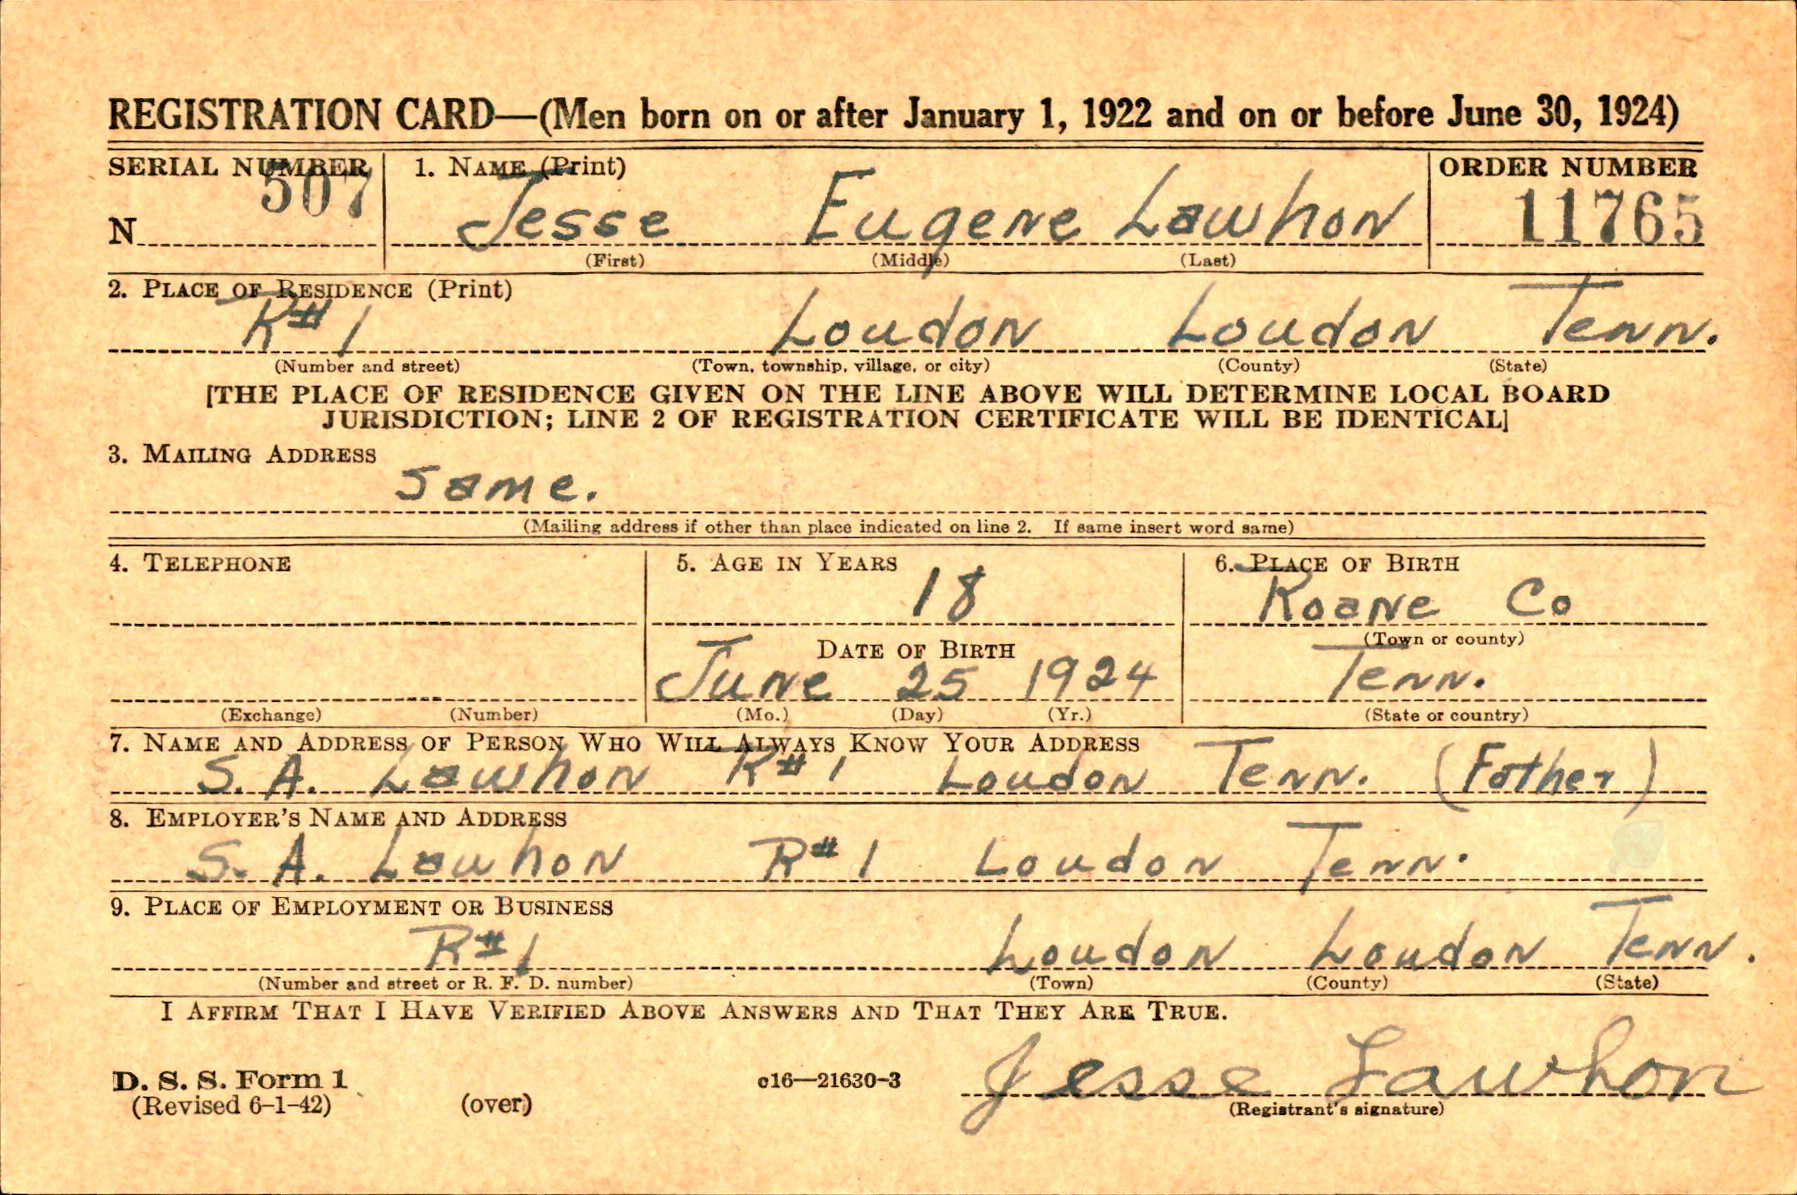 REGISTRATION CARD—(Men born on or after January 1, 1922 and on or before June 30, 1924)
SERIAL NUMBER 1. NAME (Print) ORDER NUMBER
N 507 Jesse Eugene Lawhon 11765
(First) (Middle) (Last)
2. PLACE OF RESIDENCE (Print)
R#1 Loudon Loudon Tenn.
(Number and street) (Town, township, village, or city) (County) (State)
[THE PLACE OF RESIDENCE GIVEN ON THE LINE ABOVE WILL DETERMINE LOCAL BOARD
JURISDICTION; LINE 2 OF REGISTRATION CERTIFICATE WILL BE IDENTICAL]
3. MAILING ADDRESS
Same.
(Mailing address if other than place indicated on line 2. If same insert word same)
4. TELEPHONE 5. AGE IN YEARS 6. PLACE OF BIRTH
18 Roane Co
DATE OF BIRTH (Town or county)
June 25 1924 Tenn.
(Exchange) (Number) (Mo.) (Day) (Yr.) (State or country)
7. NAME AND ADDRESS OF PERSON WHO WILL ALWAYS KNOW YOUR ADDRESS
S. A. Lawhon R#1 Loudon Tenn. (Father)
8. EMPLOYER'S NAME AND ADDRESS
S. A. Lawhon R#1 Loudon Tenn.
9. PLACE OF EMPLOYMENT OR BUSINESS
R#1 Loudon Loudon Tenn.
(Number and street or R. F. D. number) (Town) (County) (State)
I AFFIRM THAT I HAVE VERIFIED ABOVE ANSWERS AND THAT THEY ARE TRUE.
D. S. S. Form 1
(Revised 6-1-42) (over) c16—21630-3 Jesse Lawhon
(Registrant's signature)